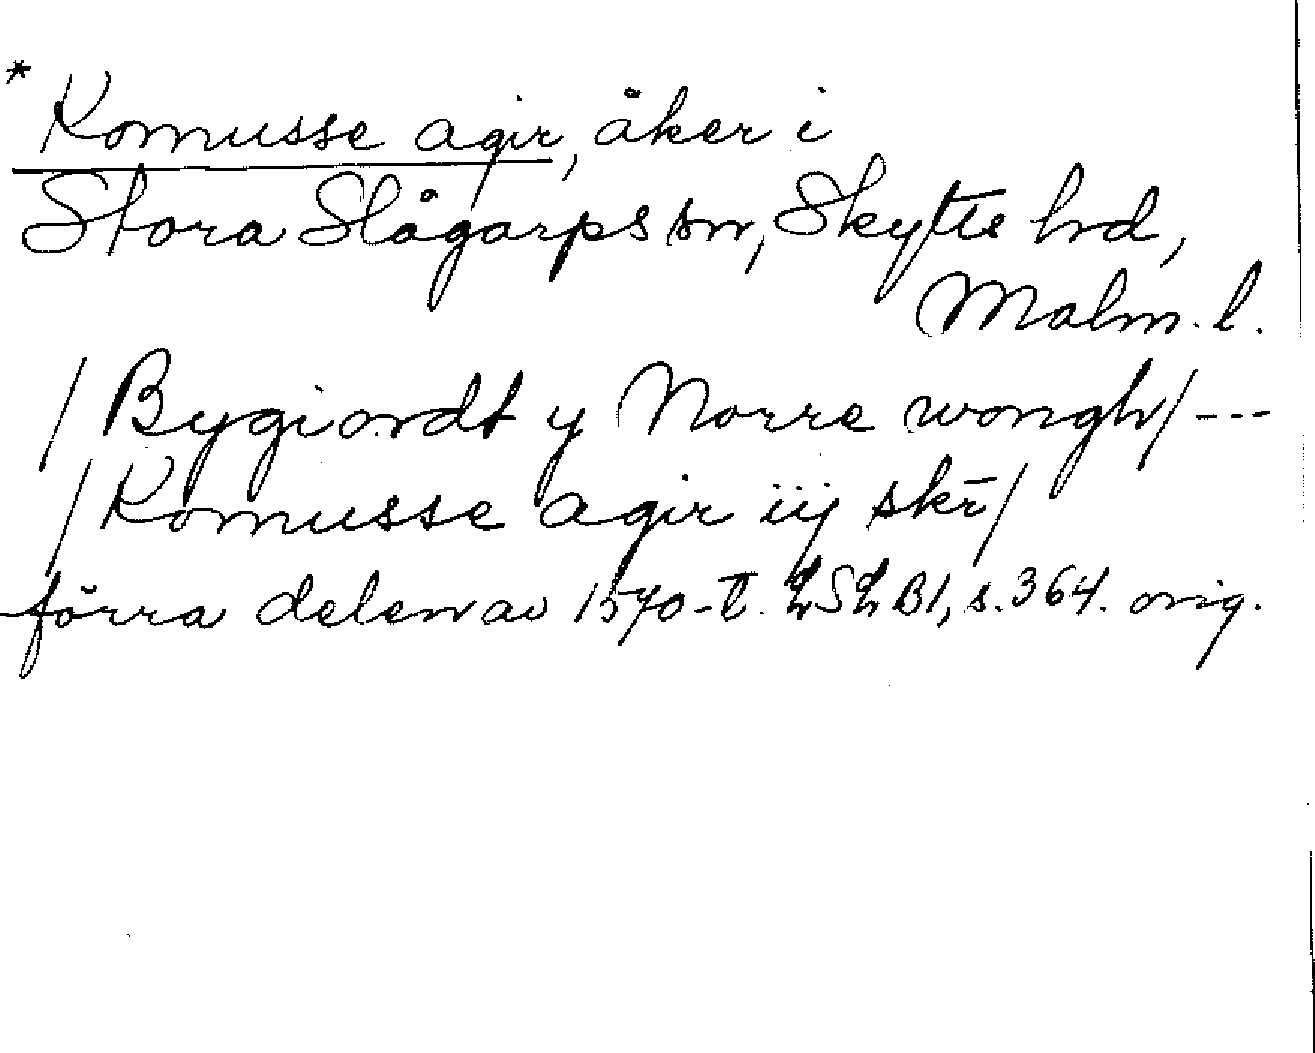 * Komusse agir, åker i
Stora Slågarps sn, Skytts hd,
Malm. l.
/ Bygiordt y Norre wongh / ---
/ Komusse agir iij skr̄ /
förra delen av 1570-t. LSL B1, s. 364. orig.